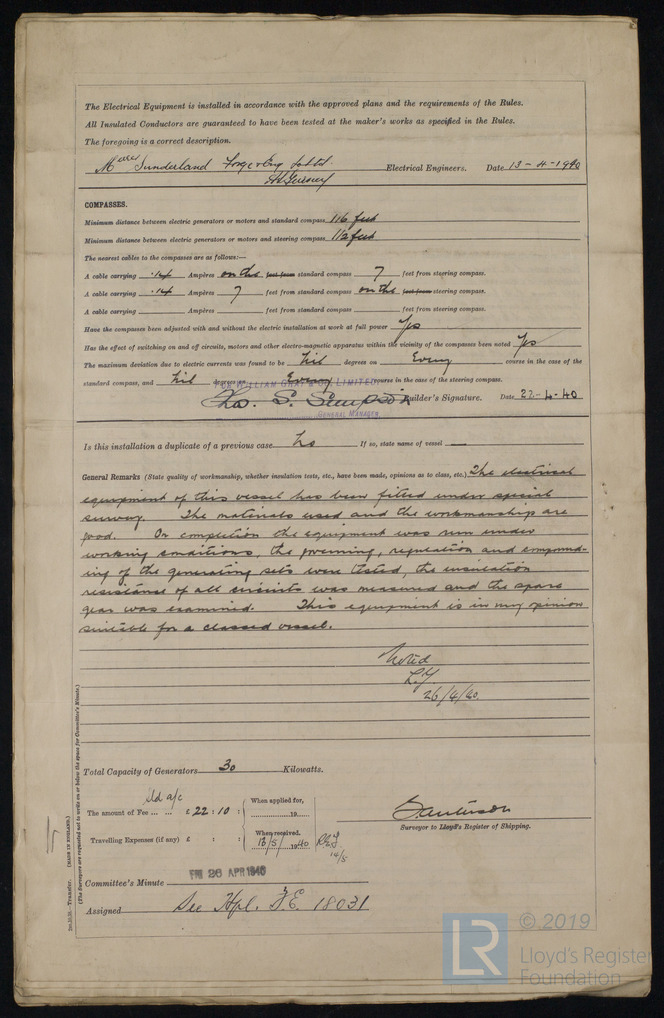 The Electrical Equipment is installed in accordance with the approved plans and the requirements of the Rules.
All Insulated Conductors are guaranteed to have been tested at the maker's works as specified in the Rules.
The foregoing is a correct description.
Sunderland Forge & Eng Co Ltd Electrical Engineers. Date 13-4-1940
COMPASSES.
Minimum distance between electric generators or motors and standard compass 116 feet
Minimum distance between electric generators or motors and steering compass 112 feet
The nearest cables to the compasses are as follows:—
A cable carrying .14 Ampères on the feet from standard compass 7 feet from steering compass.
A cable carrying .14 Ampères 7 feet from standard compass on the feet from steering compass.
A cable carrying Ampères feet from standard compass feet from steering compass.
Have the compasses been adjusted with and without the electric installation at work at full power Yes
Has the effect of switching on and off circuits, motors and other electro-magnetic apparatus within the vicinity of the compasses been noted Yes
The maximum deviation due to electric currents was found to be Nil degrees on Every course in the case of the
standard compass, and Nil degrees on Every course in the case of the steering compass.
FOR WILLIAM GRAY & CO. LIMITED,
Thos. S. Simpson Builder's Signature. Date 22-4-40
GENERAL MANAGER
Is this installation a duplicate of a previous case No If so, state name of vessel —
General Remarks (State quality of workmanship, whether insulation tests, etc., have been made, opinions as to class, etc.) The electrical
equipment of this vessel has been fitted under special
survey. The materials used and the workmanship are
good. On completion the equipment was run under
working conditions, the governing, regulation and compound-
ing of the generating sets were tested, the insulation
resistance of all circuits was measured and the spare
gear was examined. This equipment is in my opinion
suitable for a classed vessel.
Noted
26/4/40.
Total Capacity of Generators 30 Kilowatts.
The amount of Fee ... ... £ 22 : 10 : When applied for, 19
Travelling Expenses (if any) £ : : When received. 13/5/1940
Surveyor to Lloyd's Register of Shipping.
FRI 26 APR 1940
Committee's Minute
Assigned See Hpl. F.E. 18031
Transfer. (MADE IN ENGLAND.)
(The Surveyors are requested not to write on or below the space for Committee's Minute.)
© 2019
LR
Lloyd's Register
Foundation